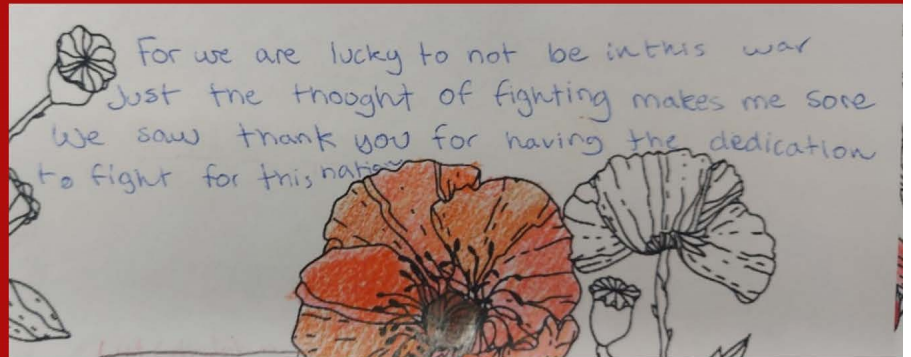 For we are lucky to not be in this war
Just the thooght of fighting makes me sore
We saw thank you for having the dedication
to fight for this nation